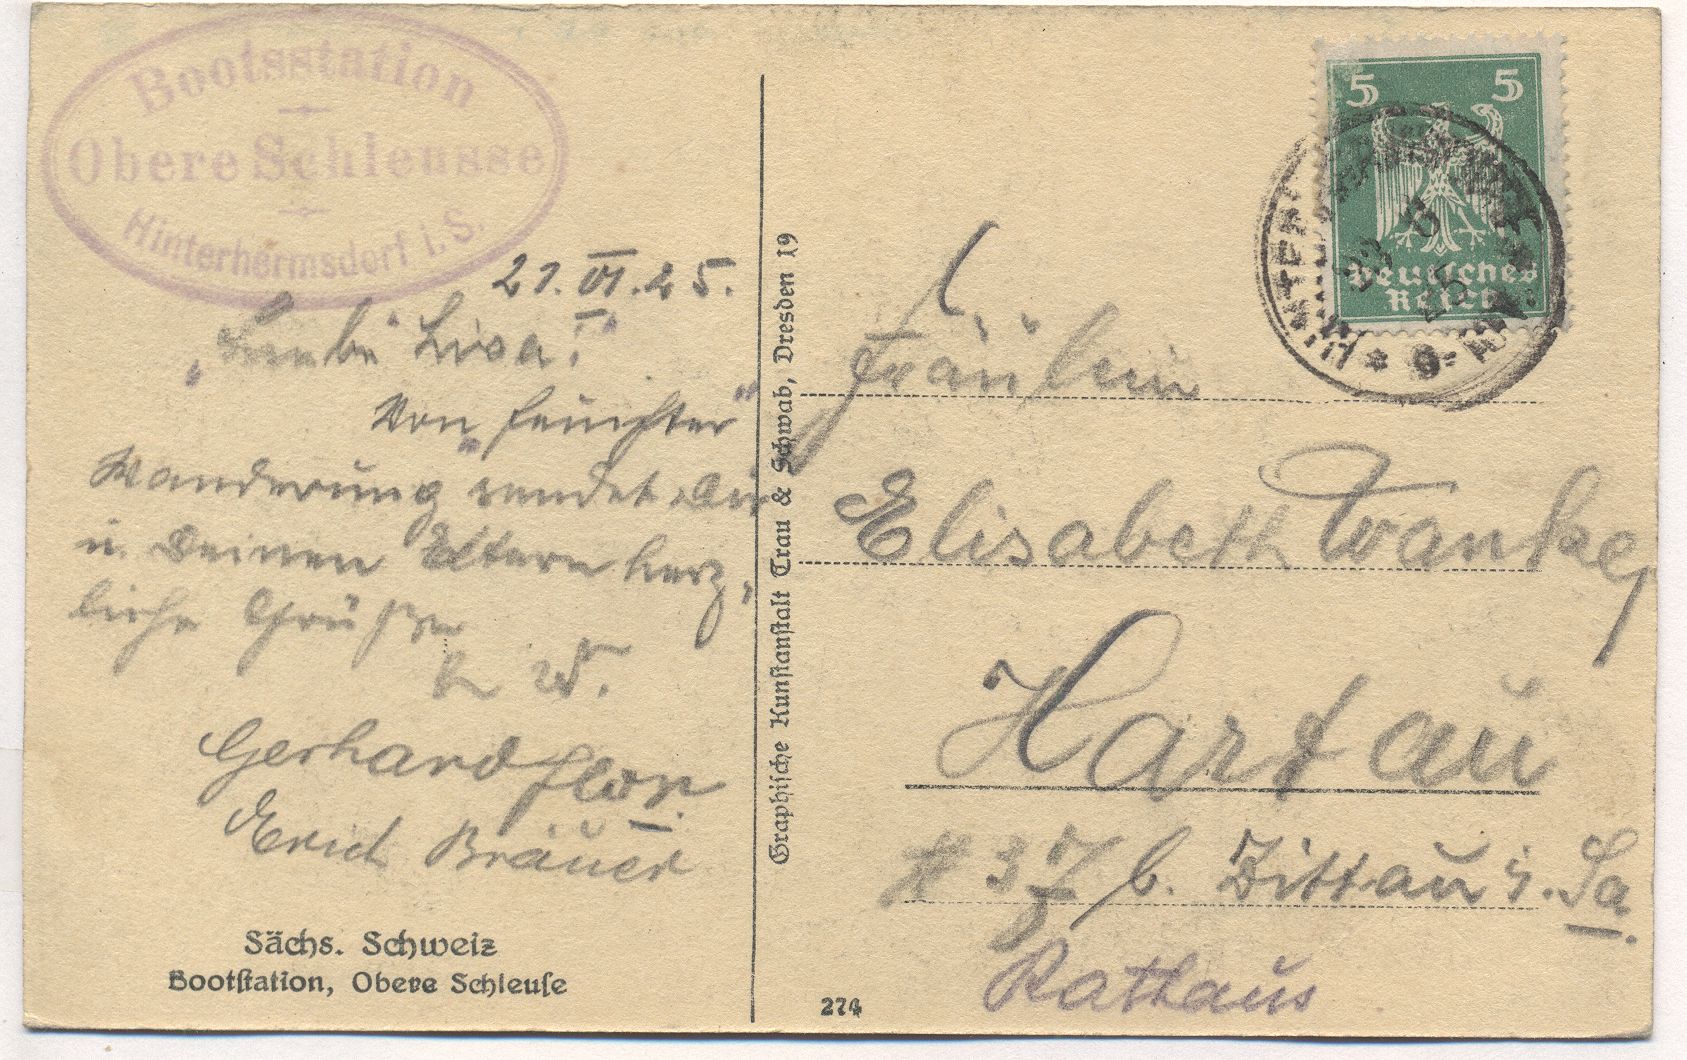 Bootsstation
Obere Schleusse
Hinterhermsdorf i. S.
21. VI. 25.
"Liebe Lisa!"
Von "feuchter"
Wanderung sendet Dir
u. Deinen Eltern herz-
liche Grüße
Gerhard Flor.
Erich Bräuer
Sächs. Schweiz
Bootſtation, Obere Schleuſe
Graphiſche Kunſtanſtalt Trau & Schwab, Dresden 19
274
5 5
Deutsches
Reich
Fräulein
Elisabeth Wanke,
Hartau
# 37 b. Zittau i. Sa.
Rathaus